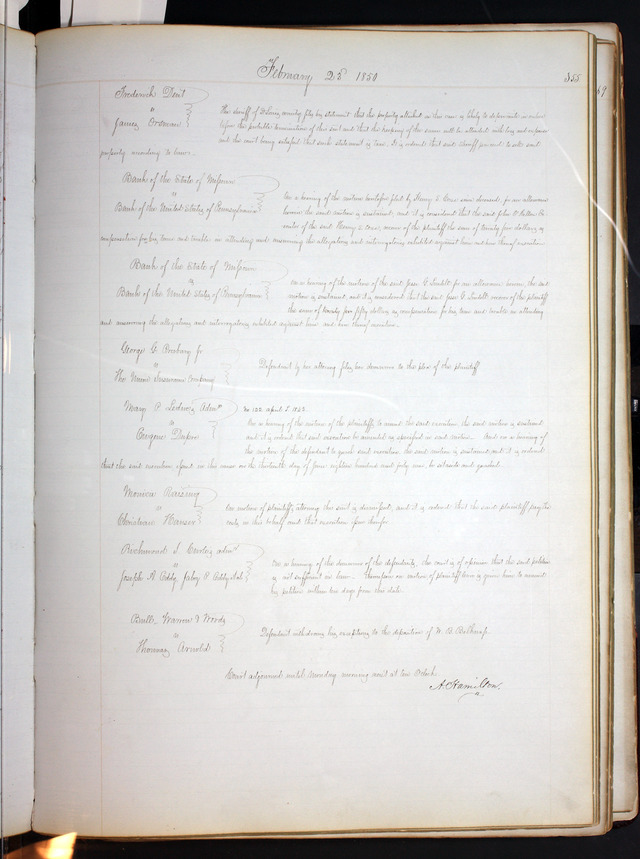 February 23d 1850
355
Frederick Dent
vs
James Orsman
The sheriff of St Louis county files his statement that the property attached in this case is likely to depreciate in value
before the probable termination of this suit and that the keeping of the same will be attended with loss and expense
and the court being satisfied that such statement is true. It is ordered that said sheriff proceed to sell said
property according to law.
Bank of the State of Missouri
vs
Bank of the United States of Pennsylvania
On a hearing of the motion heretofore filed by Henry S. Coxe for an allowance
herein, the said motion is sustained, and it is considered that the said
Henry S. Coxe, recover of the plaintiff the sum of twenty five dollars as
compensation for his time and trouble in attending and answering the allegations and interrogatories exhibited against him and have thereof execution.
Bank of the State of Missouri
vs
Bank of the United States of Pennsylvania
On a hearing of the motion of the said Jesse G. Lindell for an allowance herein, the said
motion is sustained, and it is considered that the said Jesse G. Lindell recover of the plaintiff
the sum of twenty five dollars as compensation for his time and trouble in attending
and answering the allegations and interrogatories exhibited against him and have thereof execution.
George G. Presbury Jr
vs
The Insurance Company
Defendant by her attorney files her demurrer to the plea of the plaintiff
Mary P. Leduc's Adm
vs
Eugene Dupre
No 122 April T. 1843
On a hearing of the motion of the plaintiffs, to amend the said execution, the said motion is sustained
and it is ordered that said execution be amended as specified in said motion. And on a hearing of
the motion of the defendant to quash said execution the said motion is sustained, and it is ordered
that the said execution, issued in this cause on the thirteenth day of June eighteen hundred and forty nine, be set aside and quashed.
Monica Reising
vs
Christian Hauser
On motion of plaintiff's attorney this suit is dismissed, and it is ordered that the said plaintiff pay the
costs in this behalf and that execution issue therefor
Richmond J. Curle's adm
vs
Joseph A. Eddy
On a hearing of the demurrer of the defendants, the court is of opinion that the said petition
is not sufficient in law. Thereupon on motion of plaintiff leave is given him to amend
his petition within ten days from this date.
Bulls, Warrow & Woods
vs
Thomas Arnold
Defendant withdraws his exceptions to the deposition of W. B. Belknap.
Court adjourned until Monday morning next at ten oclock.
A. Hamilton